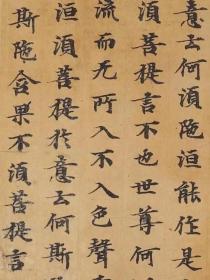 意云何須陁洹能作是
須菩提言不也世尊何
流而无所入不入色聲
洹須菩提於意云何斯
斯陁含果不須菩提言